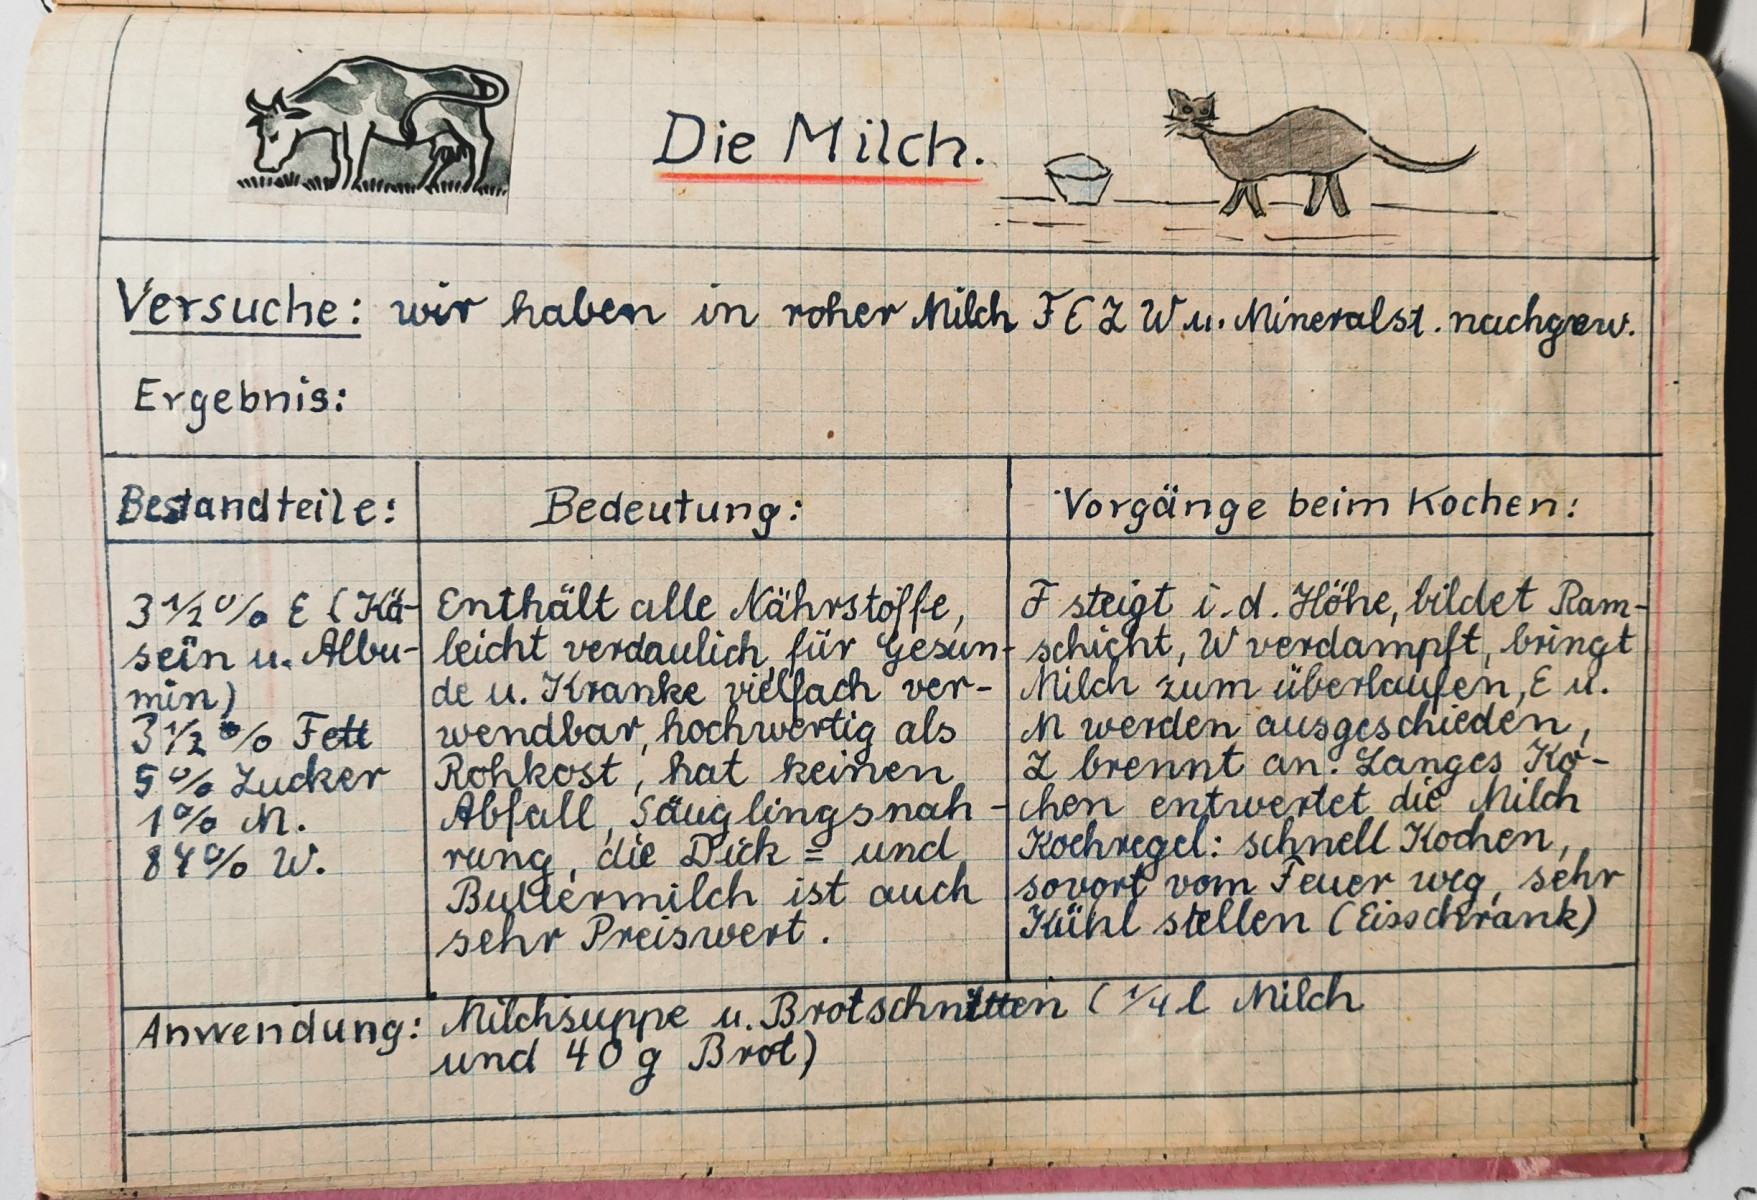 Die Milch.
Versuche: wir haben in roher Milch F E Z W u. Mineralst. nachgew.
Ergebnis:
Bestandteile:
Bedeutung:
Vorgänge beim Kochen:
3 1/2 % E (Kä-
sein u. Albu-
min)
3 1/2 % Fett
5 % Zucker
1 % M.
84 % W.
Enthält alle Nährstoffe,
leicht verdaulich, für Gesun-
de u. Kranke vielfach ver-
wendbar, hochwertig als
Rohkost, hat keinen
Abfall, Säuglingsnah-
rung, die Dick= und
Buttermilch ist auch
sehr Preiswert.
F steigt i. d. Höhe, bildet Ram-
schicht, W verdampft, bringt
Milch zum überlaufen, E u.
M werden ausgeschieden,
Z brennt an. Langes Ko-
chen entwertet die Milch
Kochregel: schnell Kochen,
sovort vom Feuer weg, sehr
Kühl stellen (Eisschrank)
Anwendung: Milchsuppe u. Brotschnitten (1/4 l Milch
und 40 g Brot)